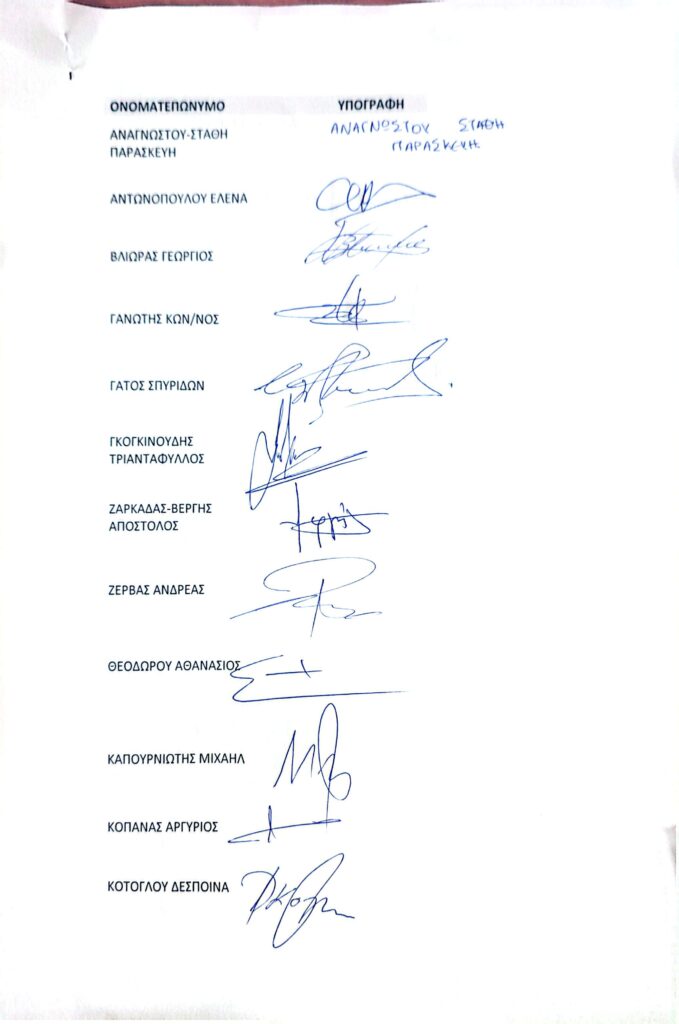 ΟΝΟΜΑΤΕΠΩΝΥΜΟ ΥΠΟΓΡΑΦΗ
ΑΝΑΓΝΩΣΤΟΥ-ΣΤΑΘΗ ΑΝΑΓΝΩΣΤΟΥ ΣΤΑΘΗ
ΠΑΡΑΣΚΕΥΗ ΠΑΡΑΣΚΕΥΗ
ΑΝΤΩΝΟΠΟΥΛΟΥ ΕΛΕΝΑ
ΒΛΙΩΡΑΣ ΓΕΩΡΓΙΟΣ
ΓΑΝΩΤΗΣ ΚΩΝ/ΝΟΣ
ΓΑΤΟΣ ΣΠΥΡΙΔΩΝ
ΓΚΟΓΚΙΝΟΥΔΗΣ
ΤΡΙΑΝΤΑΦΥΛΛΟΣ
ΖΑΡΚΑΔΑΣ-ΒΕΡΓΗΣ
ΑΠΟΣΤΟΛΟΣ
ΖΕΡΒΑΣ ΑΝΔΡΕΑΣ
ΘΕΟΔΩΡΟΥ ΑΘΑΝΑΣΙΟΣ
ΚΑΠΟΥΡΝΙΩΤΗΣ ΜΙΧΑΗΛ
ΚΟΠΑΝΑΣ ΑΡΓΥΡΙΟΣ
ΚΟΤΟΓΛΟΥ ΔΕΣΠΟΙΝΑ